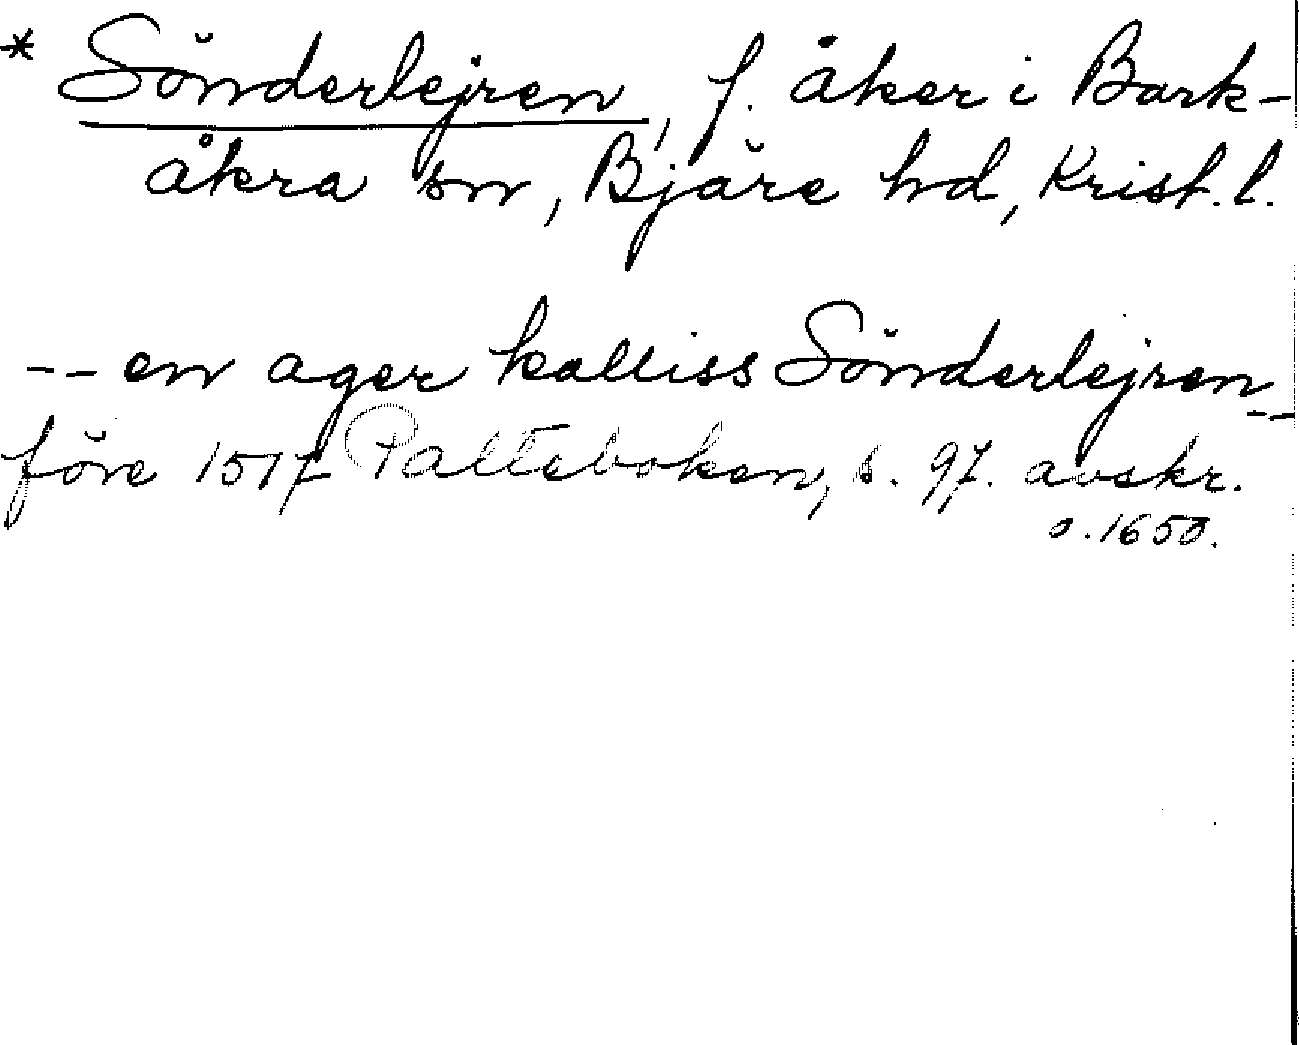 * Sönderlejren, f. åker i Bark-
åkra sn, Bjäre hd, Krist. l.
-- en ager kalliss Sönderlejren --
före 1517 Palteboken, s. 97. avskr.
o. 1650.